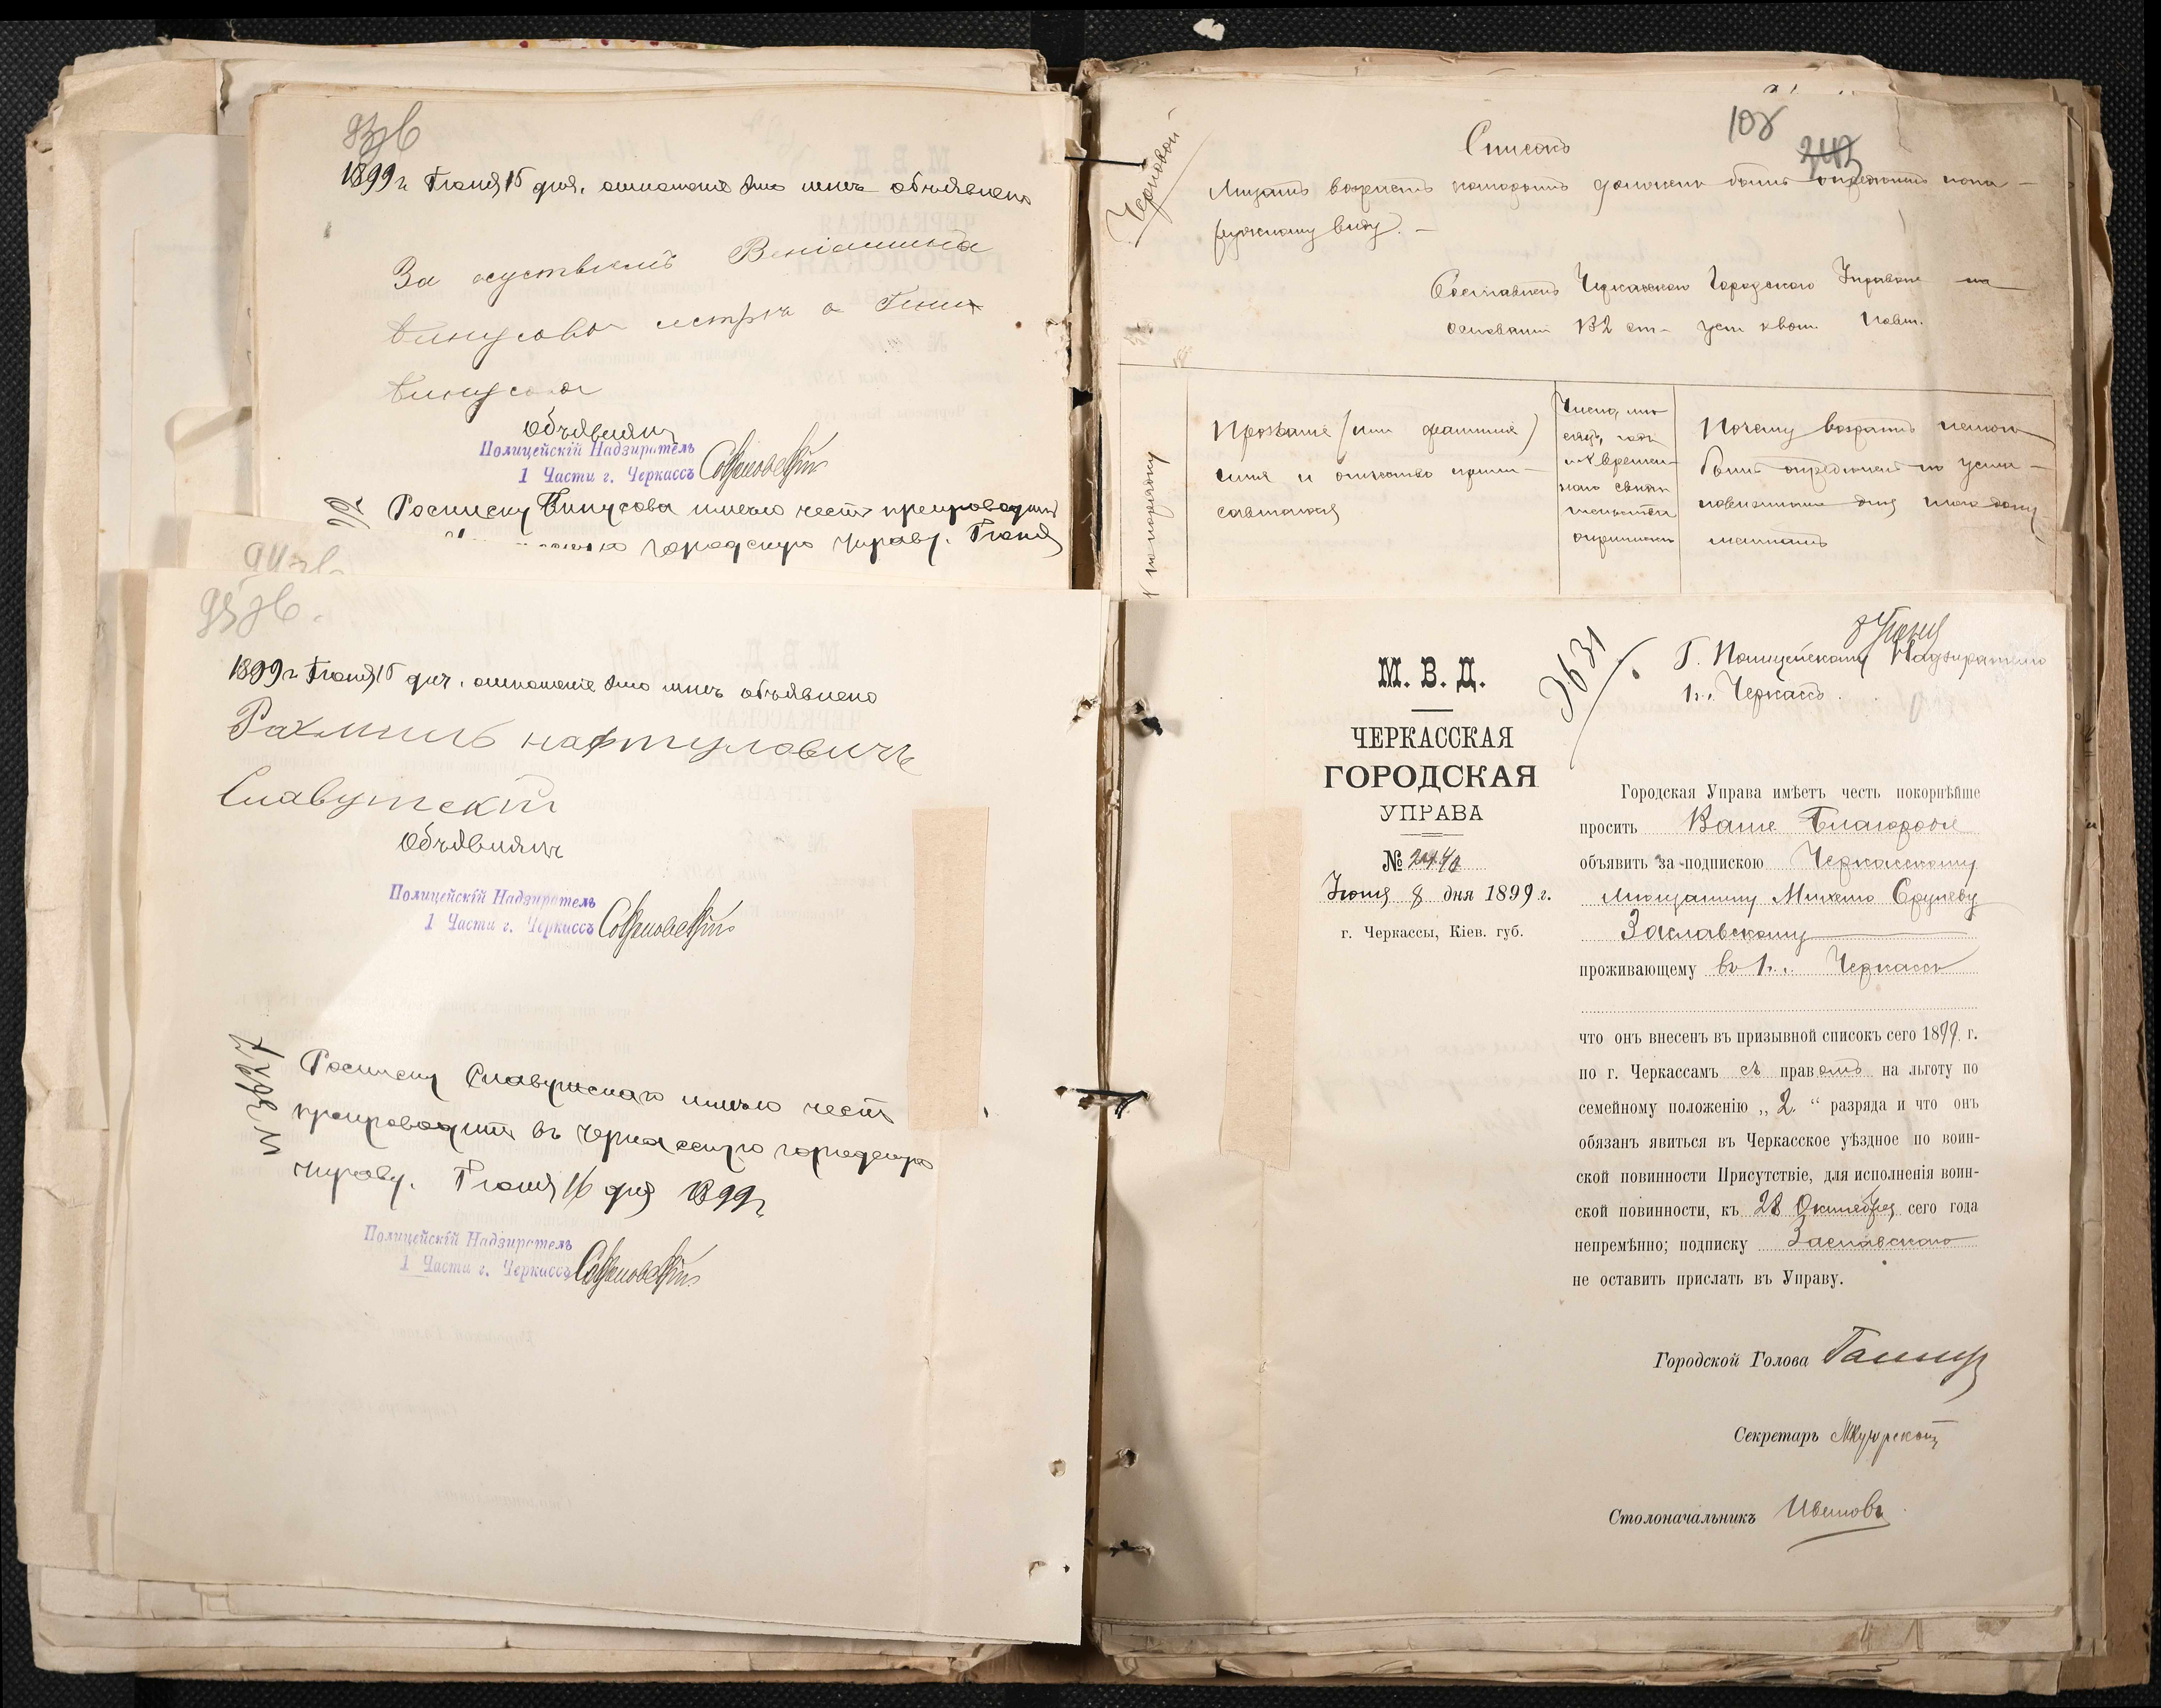 1899 г. Іюня 15 дня, отношеніе это мнѣ объявлено
За отсутствіемъ Веніамина
Винусова сестра а Гиня
Винусова
Объявилъ
Полицейскій Надзиратель
1 Части г. Черкассъ
Росписку Винусова имѣю честь препроводить
городскую управу. Іюня
1899 г. Іюня 15 дня, отношеніе это мнѣ объявлено
Рахмиль нафтуловичъ
Славутскій
Объявилъ
Полицейскій Надзиратель
1 Части г. Черкассъ
№ 3627
Росписку Славутскаго имѣю честь
препроводить въ Черкасскую городскую
управу. Іюня 16 дня 1899 г.
Полицейскій Надзиратель
1 Части г. Черкассъ
108
243
Черновой
Списокъ
Лицамъ возрастъ которыхъ долженъ быть опредѣленъ по на-
ружному виду. —
Составленъ Черкасскою Городскою Управою на
основаніи 132 ст. уст. о воин. повин.
№ по порядку
Прозваніе (или фамилія)
имя и отчество
Число, мѣ-
сяцъ, годъ
Почему возрастъ не мог
быть опредѣленъ по
документамъ
3631
9 Іюня
Г. Полицейскому Надзирателю
1 ч. Черкассъ.
М. В. Д.
ЧЕРКАССКАЯ
ГОРОДСКАЯ
УПРАВА
№ 2440
Іюня 8 дня 1899 г.
г. Черкассы, Кіев. губ.
Городская Управа имѣетъ честь покорнѣйше
просить Ваше Благородіе
объявить за подпискою Черкасскому
мѣщанину Михелю Срулеву
Заславскому
проживающему въ г. Черкассы
что онъ внесенъ въ призывной списокъ сего 1899 г.
по г. Черкассамъ съ правомъ на льготу по
семейному положенію „ 2 “ разряда и что онъ
обязанъ явиться въ Черкасское уѣздное по воин-
ской повинности Присутствіе, для исполненія воин-
ской повинности, къ 28 Октября сего года
непремѣнно; подписку Заславскаго
не оставить прислать въ Управу.
Городской Голова
Секретарь
Столоначальникъ Ивановъ